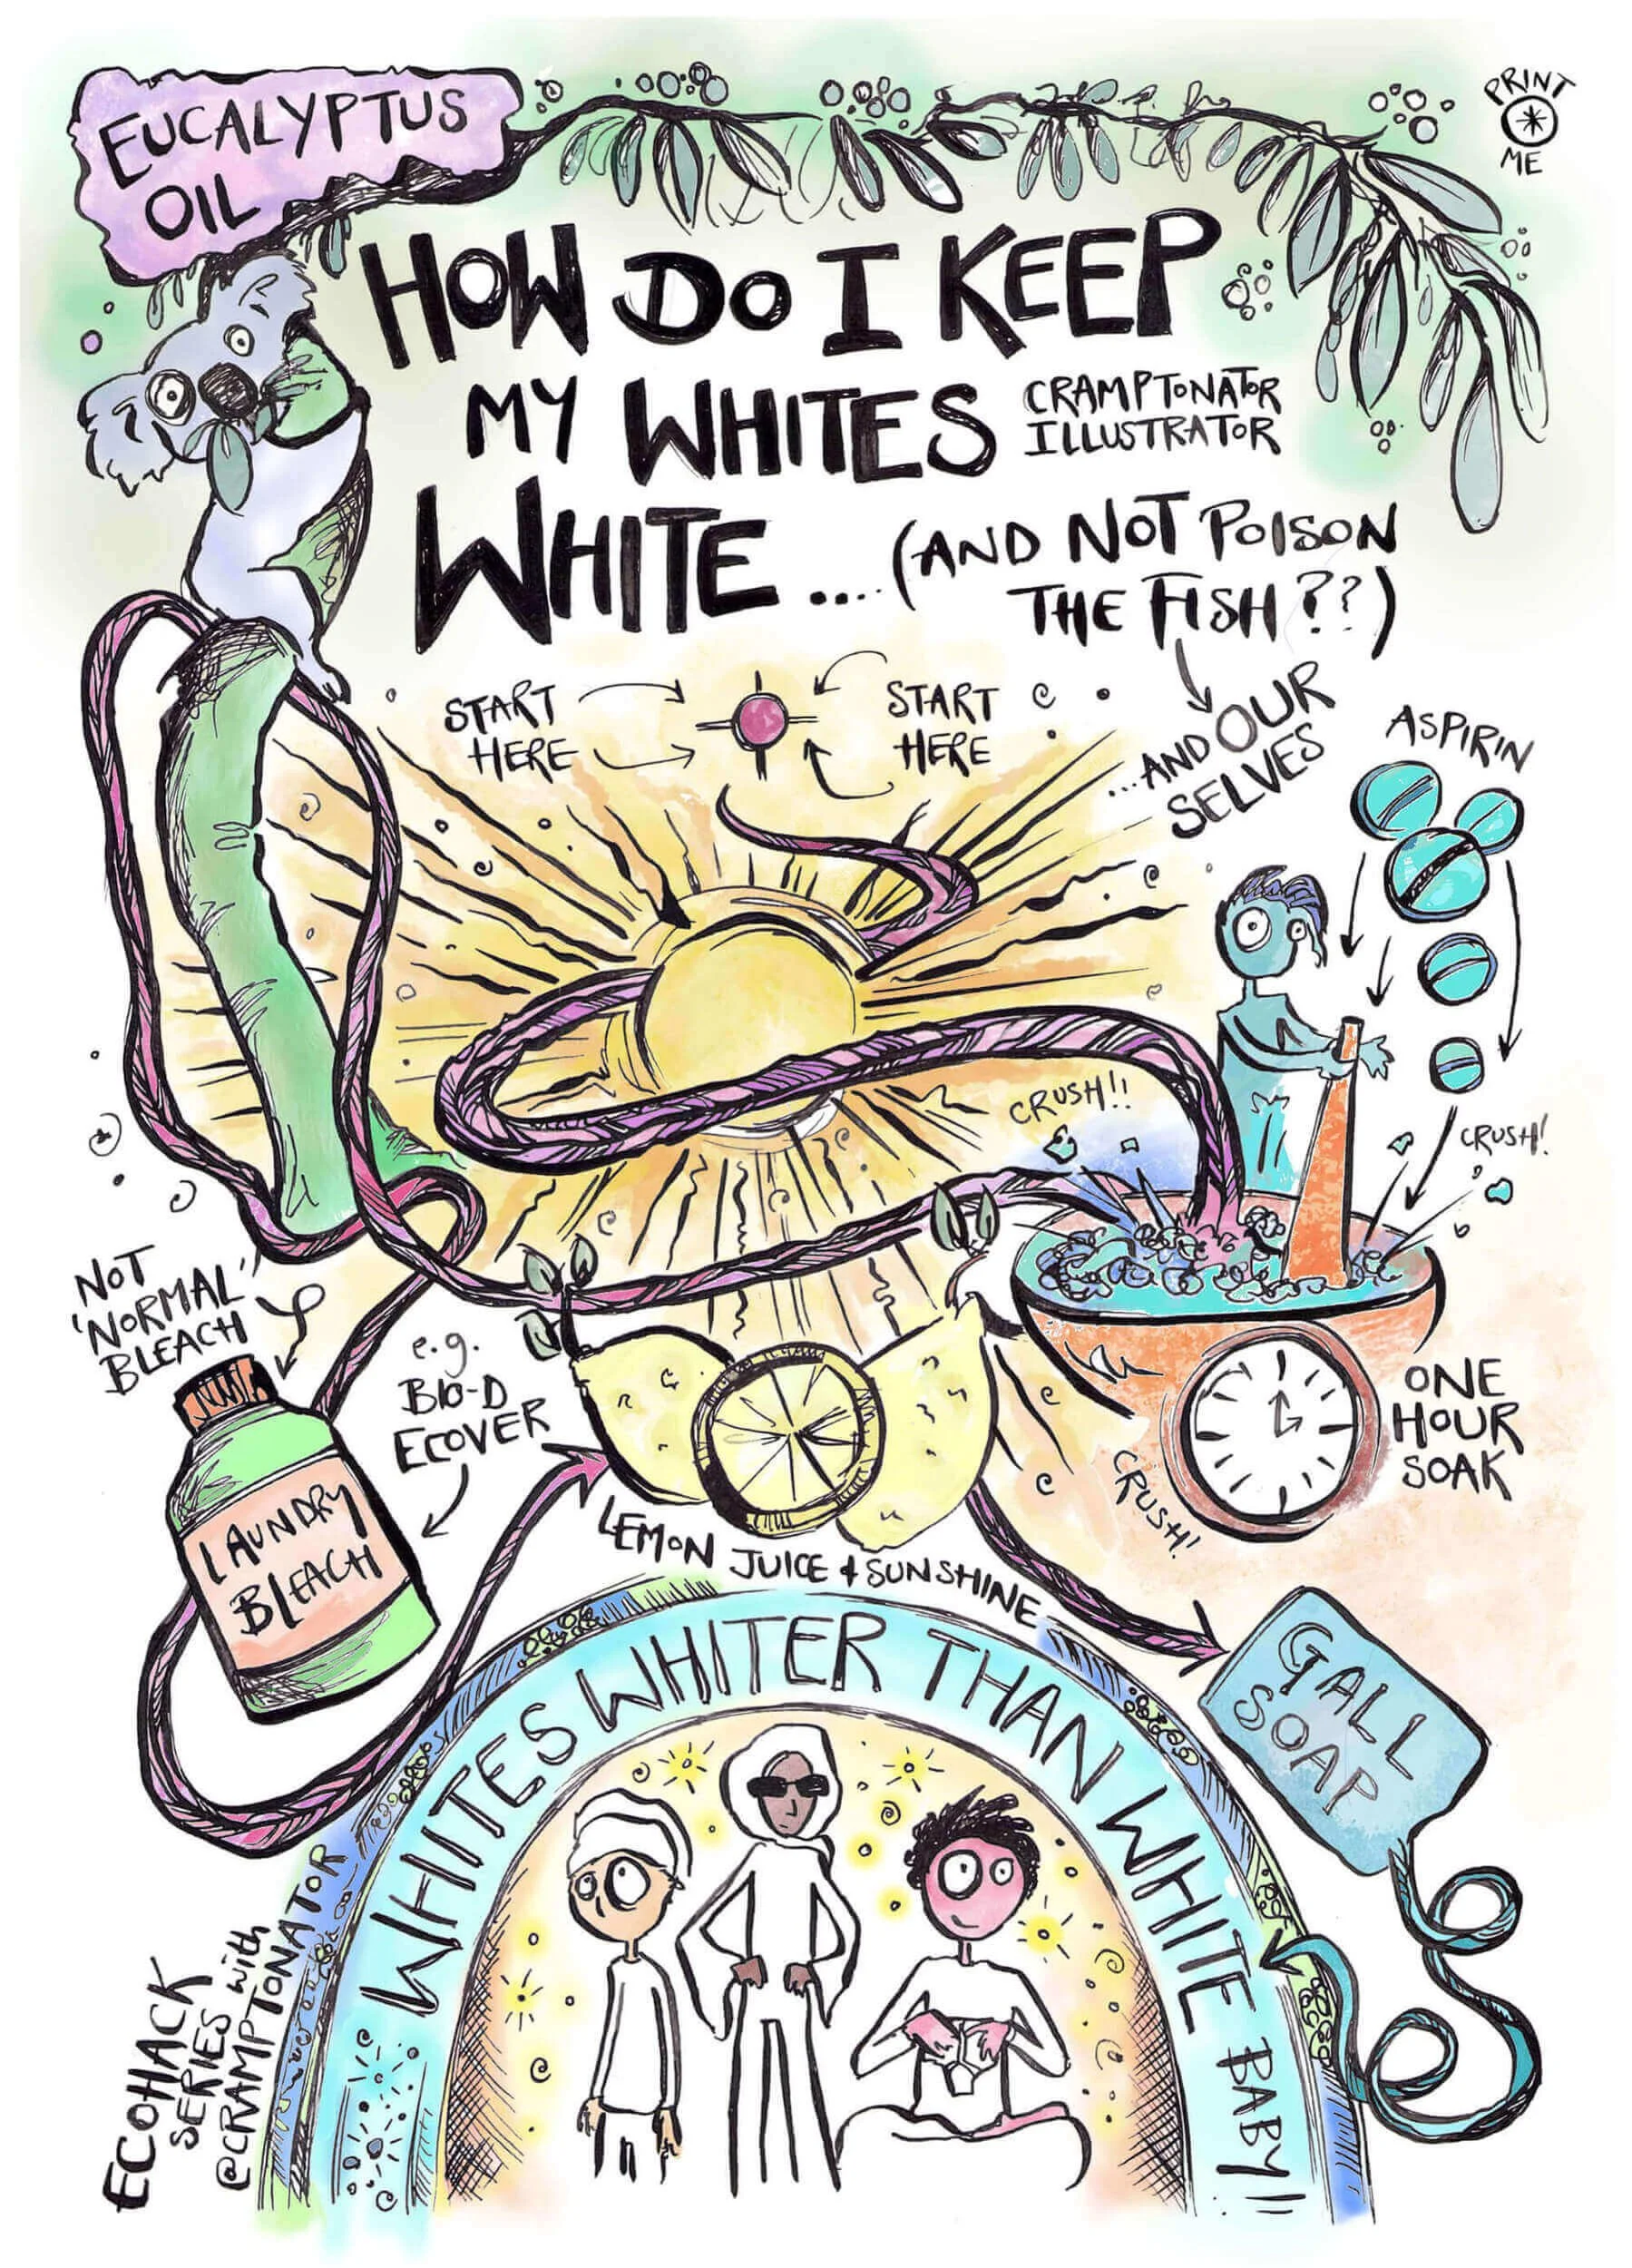 EUCALYPTUS
OIL
PRINT
ME
HOW DO I KEEP
MY WHITES
CRAMPTONATOR
ILLUSTRATOR
WHITE.... (AND NOT POISON
THE FISH??)
...AND OUR
SELVES
START
HERE
START
HERE
ASPIRIN
CRUSH!!
CRUSH!
NOT
'NORMAL'
BLEACH
e.g.
BIO-D
ECOVER
LAUNDRY
BLEACH
LEMON JUICE & SUNSHINE
ONE
HOUR
SOAK
CRUSH!
GALL
SOAP
WHITES WHITER THAN WHITE BABY!!
ECOHACK
SERIES with
@CRAMPTONATOR